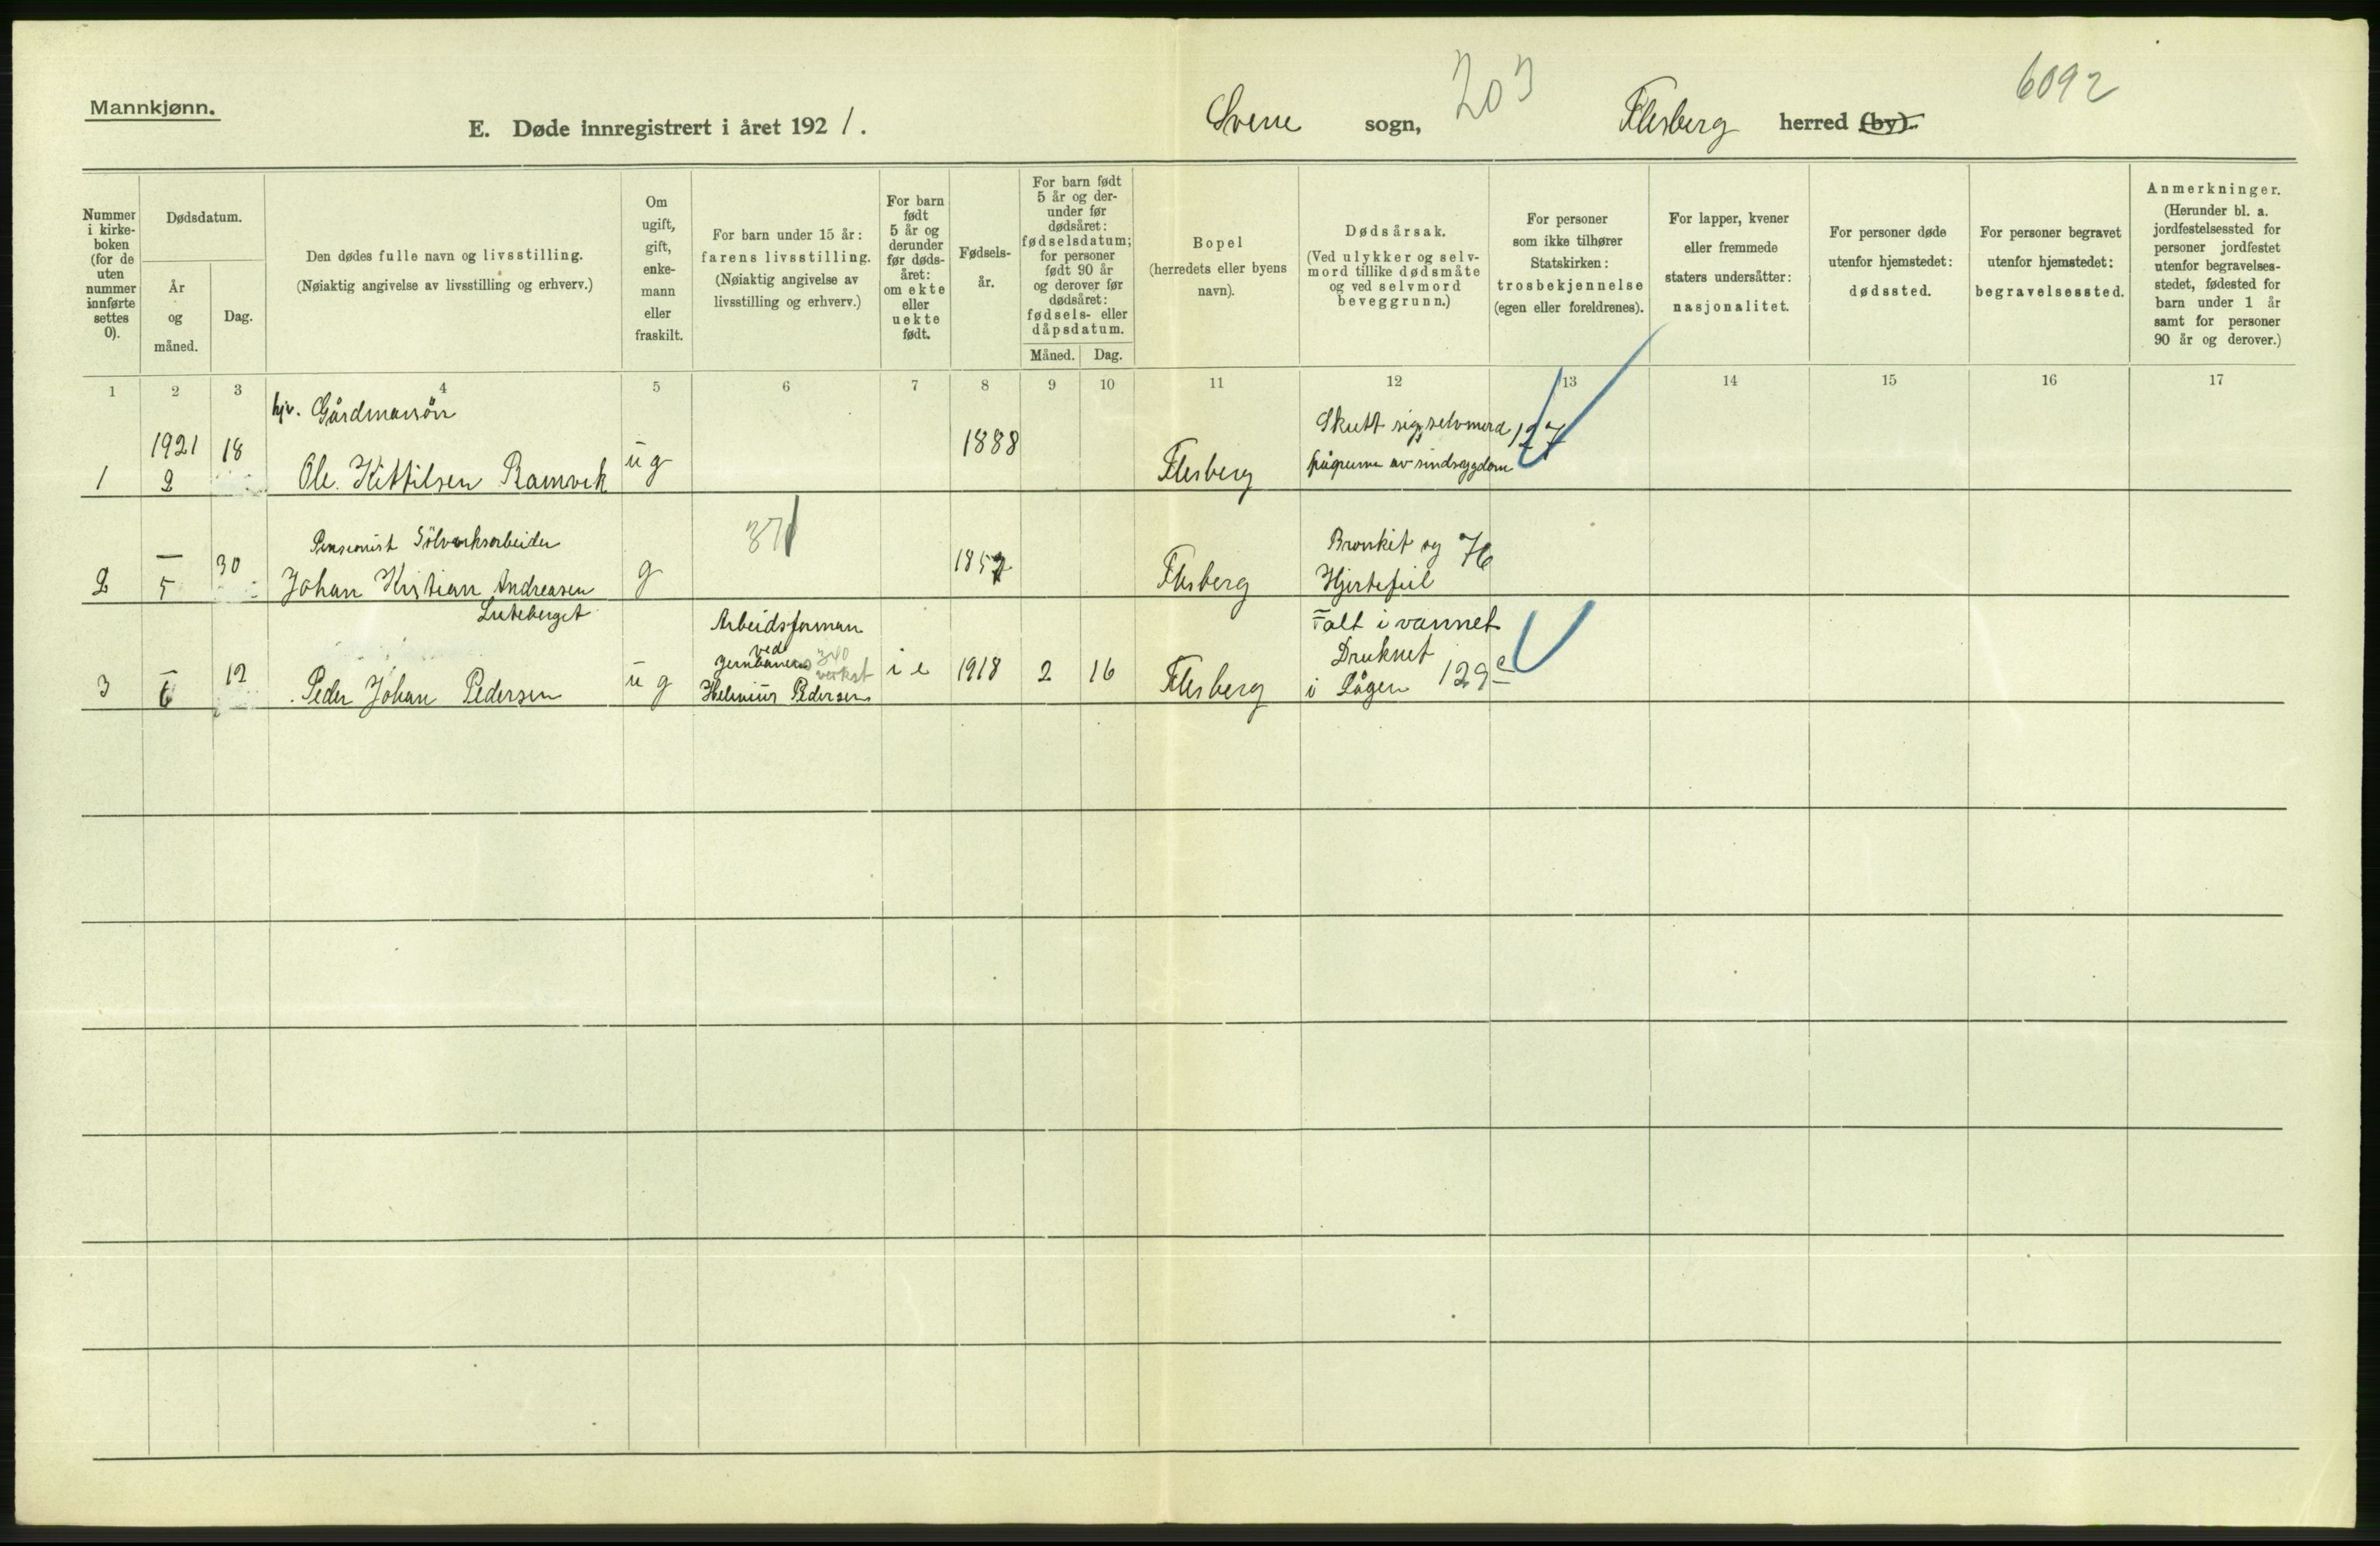 Mannkjønn.
E. Døde innregistrert i året 1921.
Svene sogn, 203 Flesberg herred (by). 6092
Nummer i kirkeboken (for de uten nummer innførte settes 0).
Dødsdatum.
År og måned.
Dag.
Den dødes fulle navn og livsstilling.
(Nøiaktig angivelse av livsstilling og erhverv.)
Om ugift, gift, enkemann eller fraskilt.
For barn under 15 år: farens livsstilling.
(Nøiaktig angivelse av livsstilling og erhverv.)
For barn født 5 år og derunder før dødsåret: om ekte eller uekte født.
Fødselsår.
For barn født 5 år og derunder før dødsåret: fødselsdatum; for personer født 90 år og derover før dødsåret: fødsels- eller dåpsdatum.
Måned. Dag.
Bopel
(herredets eller byens navn).
Dødsårsak.
(Ved ulykker og selvmord tillike dødsmåte og ved selvmord beveggrunn.)
For personer som ikke tilhører Statskirken: trosbekjennelse (egen eller foreldrenes).
For lapper, kvener eller fremmede staters undersåtter: nasjonalitet.
For personer døde utenfor hjemstedet: dødssted.
For personer begravet utenfor hjemstedet: begravelsessted.
Anmerkninger.
(Herunder bl. a. jordfestelsessted for personer jordfestet utenfor begravelsesstedet, fødested for barn under 1 år samt for personer 90 år og derover.)
1 2 3 4 5 6 7 8 9 10 11 12 13 14 15 16 17
hjv. Gårdmansön
Skutt sig, selvmord 127
1921 18 1888
1 2 Ole Kittilsen Ramvik ug Flesberg pågrunn av sindsygdom
371
Pensionist Sölverksarbeider
Bronkit og 76
— 30 1857
2 5 Johan Kristian Andreasen g Flesberg Hjertefeil
Luteberget
Arbeidsforman
Falt i vannet
ved
jernbanens 340
verkst
Druknet
3 – 6 12 Peder Johan Pedersen ug Helmiur Pedersen i e 1918 2 16 Flesberg i Lågen 129 c